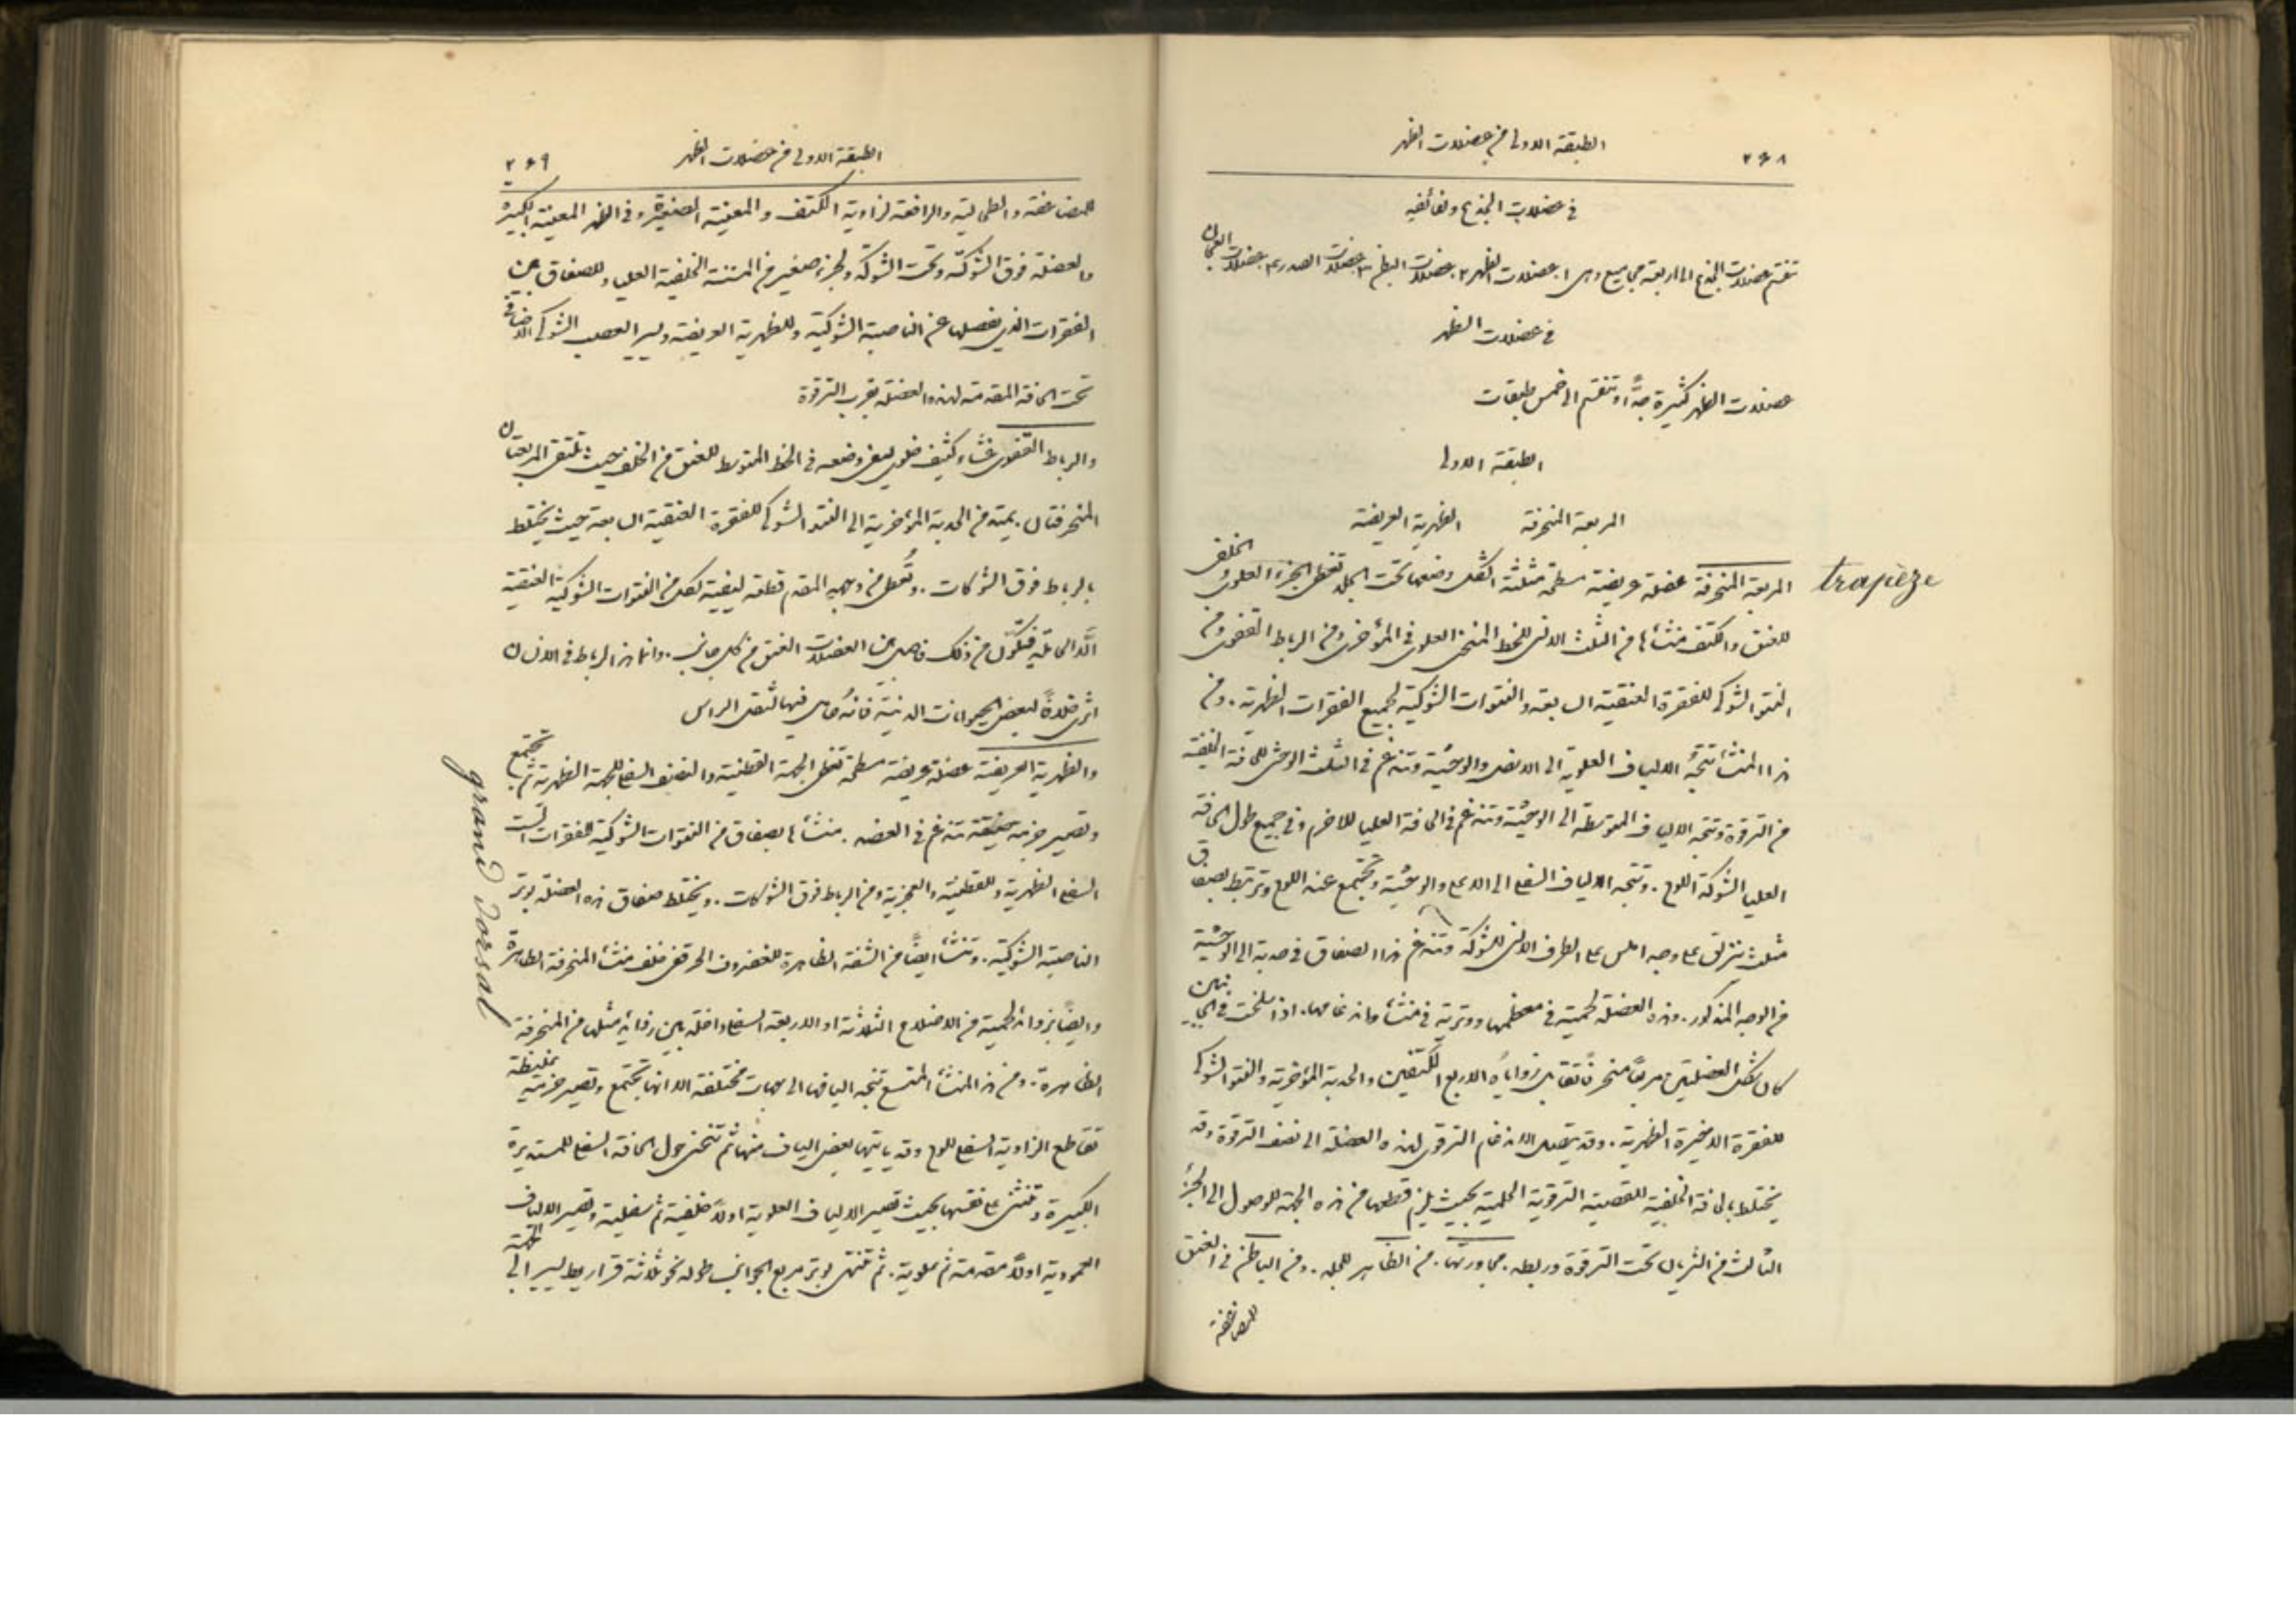 ٢٦٨ الطبقة الاولى من عضلات الظهر
في عضلات الجذع ولفائفهِ
تنقسم عضلات الجذع الى اربعة مجاميع وهي ١ عضلات الظهر ٢ عضلات البطن ٣ عضلات الصدر ٤ عضلات العجان
في عضلات الظهر
عضلات الظهر كثيرة جدًّا وتنقسم الى خمس طبقات
الطبقة الاولى
المربعة المنحرفة الظهرية العريضة
المربعة المنحرفة عضلة عريضة مسطحة مثلثة الشكل وضعها تحت الجلد تغطي الجزء العلوي الخلفي
trapèze
للعنق والكتف منشأها من الثلث الانسي للخط المنحني العلوي في المؤخري ومن الرباط القفوي ومن
النتو الشوكي للفقرة العنقية السابعة والنتوات الشوكية لجميع الفقرات الظهرية. ومن
هذا المنشأ تتجه الالياف العلوية الى الاسفل والوحشية وتندغم في الثلث الوحشي للحافة الخلفية
من الترقوة وتتجه الالياف المتوسطة الى الوحشية وتندغم في الحافة العليا للاخرم وفي جميع طول الحافة
العليا لشوكة اللوح. وتتجه الالياف السفلى الى الاعلى والوحشية وتجتمع عند اللوح وترتبط بصفاق
مثلث ينزلق على وجه املس على الطرف الانسي للشوكة وتندغم هذا الصفاق في حدبة الى الوحشية
من الوجه المذكور. وهذه العضلة لحمية في معظمها ووترية في منشأها واندغامها. اذا سلخت في الجانبين
كان شكل العضلتين مربعًا منحرفًا تقابل زواياهُ الاربع الكتفين والحدبة المؤخرية والنتو الشوكي
للفقرة الاخيرة الظهرية. وقد يتصل الاندغام الترقوي لهذه العضلة الى نصف الترقوة وقد
يختلط بالحافة الخلفية للقصية الترقوية الحلمية بحيث يلزم قطعها من هذه الجهة للوصول الى الجزء
الثالث من الشريان تحت الترقوة وربطه. مجاورتها. من الظاهر للجلد. ومن الباطن في العنق
للمضاعفة
الطبقة الاولى من عضلات الظهر ٢٦٩
للمضاعفة والطحالية والرافعة لزاوية الكتف والمعينة الصغيرة وفي الظهر المعينة الكبيرة
والعضلة فوق الشوكة وتحت الشوكة ولجزء صغير من المسننة الخلفية العليا وللصفاق بين
الفقرات الذي يفصلها عن الناصبة الشوكية وللظهرية العريضة ويسير العصب الشوكي الاضافي
تحت الحافة المقدمة لهذه العضلة بقرب الترقوة
والرباط القفوي غشاء كثيف خلوي ليفي وضعه في الخط المتوسط للعنق من الخلف حيث تلتقي المربعتان
المنحرفتان. يمتد من الحدبة المؤخرية الى النتو الشوكي للفقرة العنقية السابعة حيث يختلط
بالرباط فوق الشوكات. وتُعطى من وجهه المقدم قطعة ليفية لكل من النتوات الشوكية العنقية
الَّا الحاملة فيتكوَّن من ذلك فاصل بين العضلات العنق من كل جانب. وانما هذا الرباط في الانسان
اثر خلافًا لبعض الحيوانات الدنيَّة فانهُ حامل فيها لثقل الراس
والظهرية العريضة عضلة عريضة مسطحة تغطي الجهة القطنية والنصف السفلي للجهة الظهرية ثم تجتمع
grand dorsal
وتصير حزمة ضيقة تندغم في العضد. منشأها بصفاق من النتوات الشوكية للفقرات الست
السفلى الظهرية وللقطنية والعجزية ومن الرباط فوق الشوكات. ويختلط صفاق هذه العضلة بوتر
الناصبة الشوكية. وتنشأ ايضًا من الشفة الظاهرة للغضروف الحرقفي خلف منشأ المنحرفة الظاهرة
وايضًا بزوائد لحمية من الاضلاع الثلاثة او الاربعة السفلى داخلة بين زوائد مثلها من المنحرفة
الظاهرة. ومن هذا المنشأ المتسع تتجه اليافها الى جهات مختلفة الا انها تجتمع وتصير حزمة غليظة
تقاطع الزاوية السفلى للوح وقد ياتيها بعض الياف منها ثم تنحني حول الحافة السفلى للمستديرة
الكبيرة وتنثني على نفسها بحيث تصير الالياف العلوية اولًا خلفية ثم سفلية وتصير الالياف
العمودية اولًا مقدمة ثم علوية. ثم تنتهي بوتر مربع الجوانب طوله نحو ثلاثة قراريط يسير الى الجهة